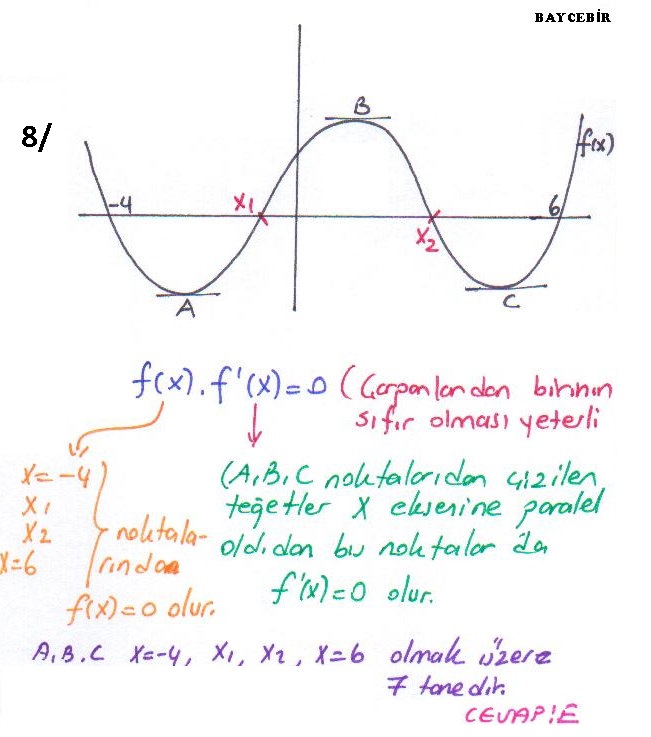 BAYCEBİR
8/
B
f(x)
-4
x1
6
x2
A
C
f(x).f'(x)=0 (Çarpanlardan birinin
sıfır olması yeterli
x=-4
x1
x2
x=6
noktala-
rından
f(x)=0 olur.
(A,B,C noktalarıdan çizilen
teğetler X eksenine paralel
oldıdan bu noktalar da
f'(x)=0 olur.
A,B.C x=-4, x1, x2, x=6 olmak üzere
7 tanedir.
CEVAP:E